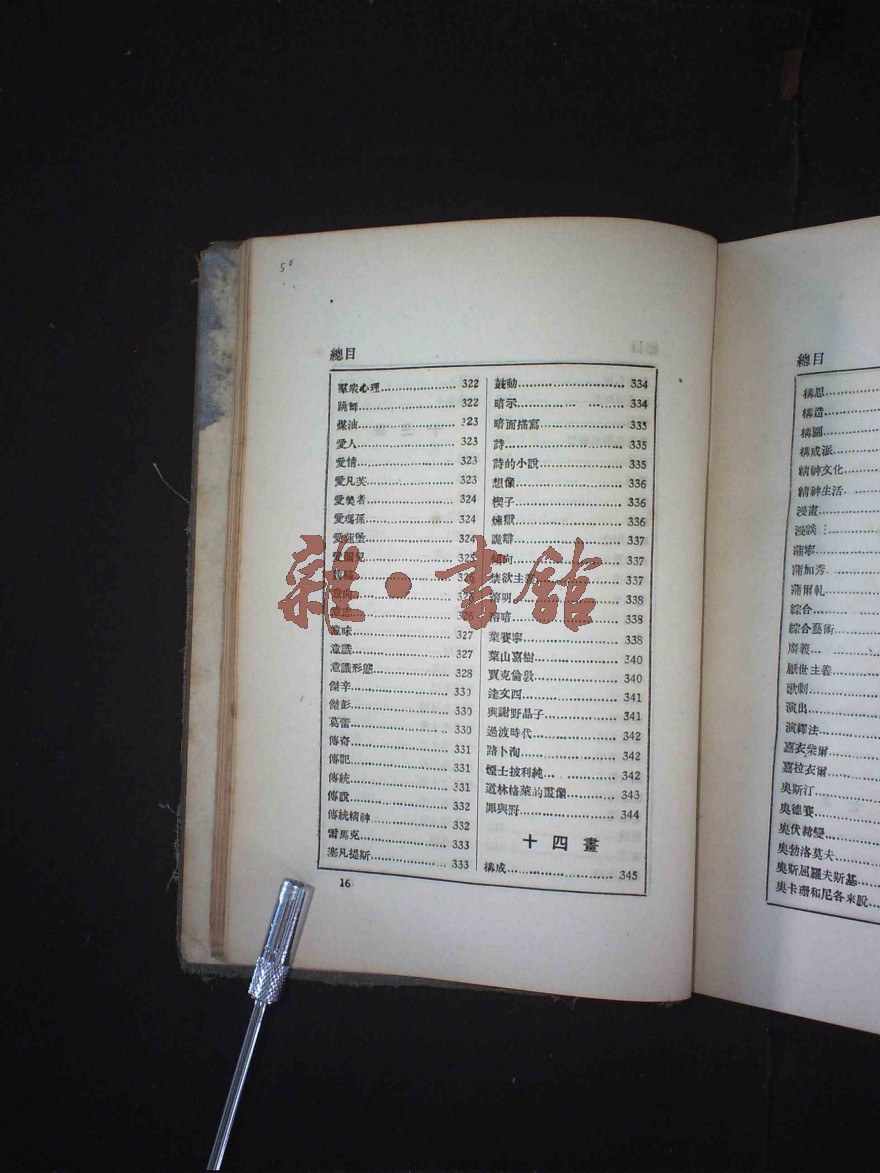 58
總目
羣衆心理 322
跳舞 322
煤油 323
愛人 323
愛情 323
愛凡芙 323
愛美者 324
愛瑪孫 324
愛蓮堡 324
愛爾兒 325
意向
意志 326
意味 327
意識 327
意識形態 328
傑辛 330
傑彭 330
葛雷 330
傳奇 331
傳記 331
傳統 331
傳說 332
傳統精神 332
雷馬克 333
塞凡提斯 333
鼓動 334
暗示 334
暗面描寫 335
詩 335
詩的小說 335
想像 336
楔子 336
煉獄 336
詭辯 337
傾向 337
禁欲主義 337
溶明 338
溶暗 338
葉賽寧 338
葉山嘉樹 340
賈克倫敦 340
達文西 341
與謝野晶子 341
過渡時代 342
路卜洵 342
煙士披利純 342
道林格萊的畫像 343
罪與罰 344
十四畫
構成 345
16
總目
構思
構造
構圖
構成派
精神文化
精神生活
漫畫
漫談
蒲寧
蒲加秀
蒲爾札
綜合
綜合藝術
廣義
厭世主義
歌劇
演出
演繹法
嘉衣柴爾
嘉拉衣爾
奧斯汀
奧德賽
奧伏赫變
奧勃洛莫夫
奧斯屈羅夫斯基
奧卡珊和尼各來脫
雜·書館